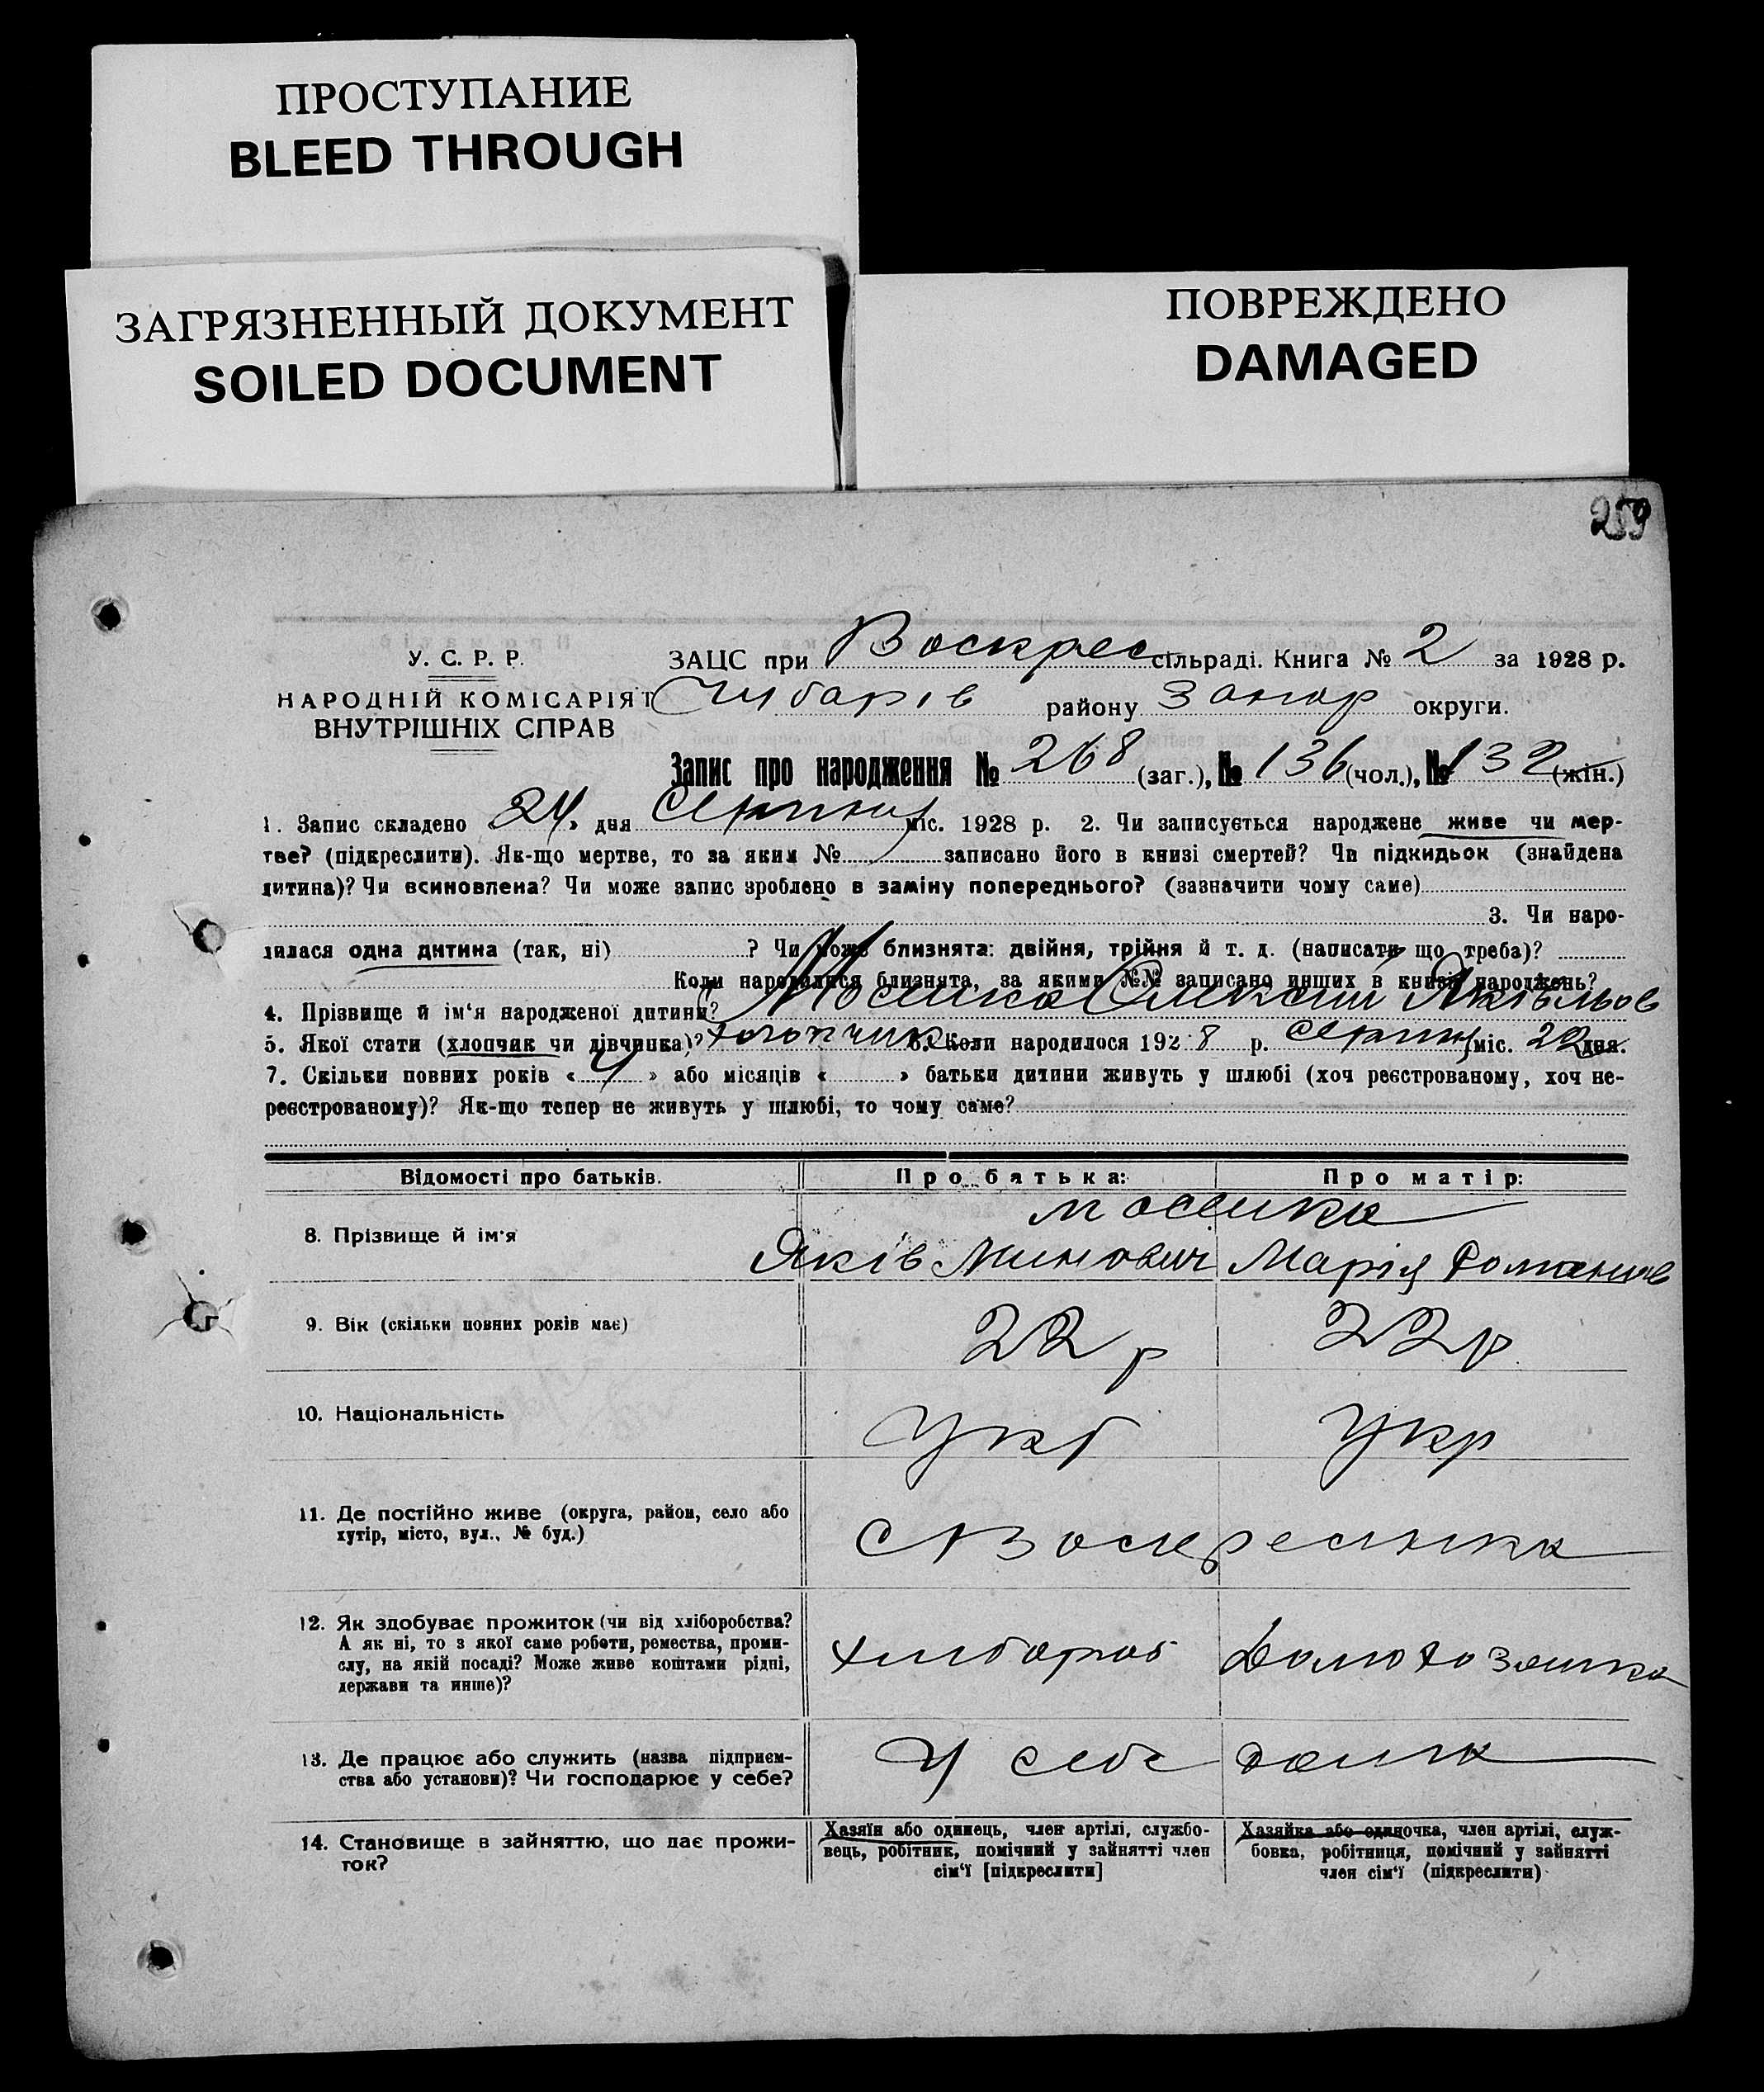 ПРОСТУПАНИЕ
BLEED THROUGH
ЗАГРЯЗНЕННЫЙ ДОКУМЕНТ
SOILED DOCUMENT
ПОВРЕЖДЕНО
DAMAGED
259
У. С. Р. Р.
НАРОДНІЙ КОМІСАРІЯТ
ВНУТРІШНІХ СПРАВ
ЗАЦС при Воскрес сільраді. Книга № 2 за 1928 р.
Чубарів району Запор округи.
Запис про народження № 268 (заг.), № 136 (чол.), № 132 (жін.)
1. Запис складено 24 » дня Серпня міс. 1928 р. 2. Чи записується народжене живе чи мер-
тве? (підкреслити). Як-що мертве, то за яким № записано його в книзі смертей? Чи підкидьок (знайдена
дитина)? Чи всиновлена? Чи може запис зроблено в заміну попереднього? (зазначити чому саме)
3. Чи наро-
дилася одна дитина (так, ні) ? Чи може близнята: двійня, трійня й т. д. (написати що треба)?
Коли народилися близнята, за якими №№ записано инших в книзі народжень?
4. Прізвище й ім'я народженої дитини? Мосиика Олексій Яківльов
5. Якої стати (хлопчик чи дівчинка)? хлопчик 6. Коли народилося 1928 р. серпня міс. 22 дня.
7. Скільки повних років « 4 » або місяців « » батьки дитини живуть у шлюбі (хоч реєстрованому, хоч не-
реєстрованому)? Як-що тепер не живуть у шлюбі, то чому саме?
Відомості про батьків. Про батька: Про матір:
8. Прізвище й ім'я
Яків Минович Марія
9. Вік (скільки повних років має) 22 р 22 р
10. Національність Укр Укр
11. Де постійно живе (округа, район, село або
хутір, місто, вул., № буд.)
С Воскресинка
12. Як здобуває прожиток (чи від хліборобства?
А як ні, то з якої саме роботи, ремества, проми-
слу, на якій посаді? Може живе коштами рідні,
держави та инше)?
хлибороб
13. Де працює або служить (назва підприєм-
ства або установи)? Чи господарює у себе?
У себе дома
14. Становище в зайняттю, що дає прожи-
ток?
Хазяїн або одинець, член артілі, службо-
вець, робітник, помічний у зайнятті член
сім'ї [підкреслити]
Хазяйка або одиночка, член артілі, служ-
бовка, робітниця, помічний у зайнятті
член сім'ї (підкреслити)